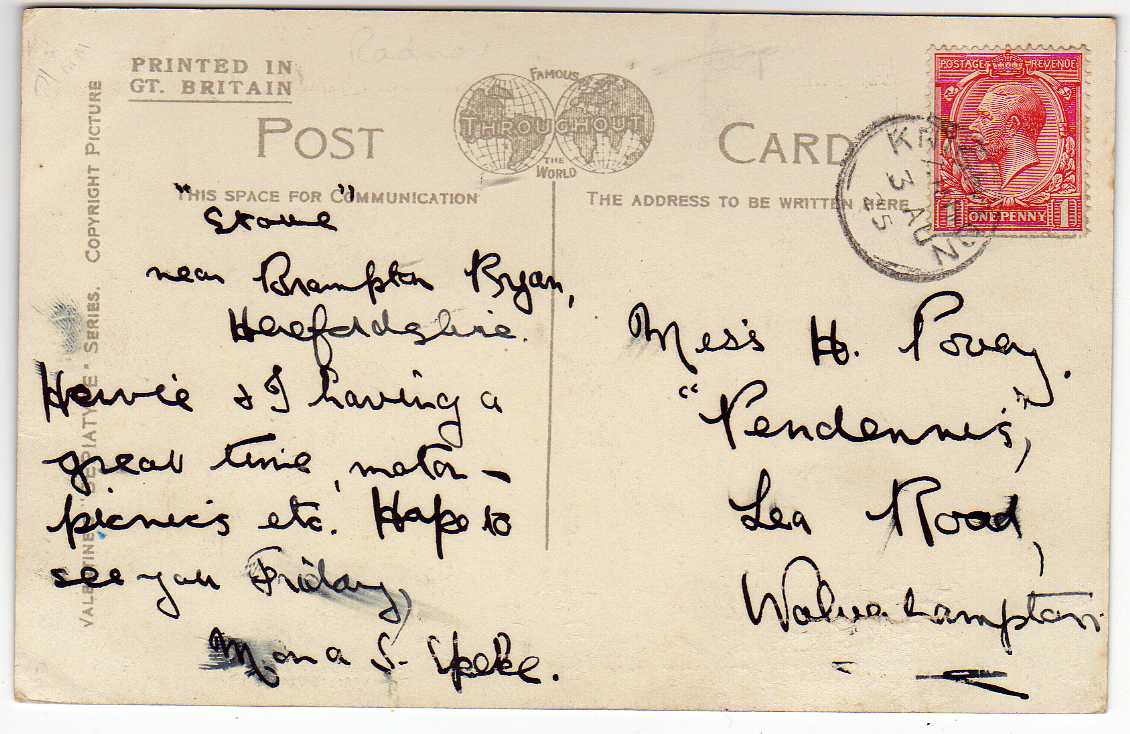 PRINTED IN
GT. BRITAIN
POST
FAMOUS
THROUGHOUT
THE
WORLD
CARD
THIS SPACE FOR COMMUNICATION
THE ADDRESS TO BE WRITTEN HERE
VALENTINE SEPIATYPE SERIES. COPYRIGHT PICTURE
POSTAGE REVENUE
1 ONE PENNY 1
KNIGHTON
3 AU
25
"Stowe"
near Brampton Bryan,
Herefordshire.
Howie & I having a
great time, motor-
picnics etc. Hope to
see you Friday,
Mona S. Speke.
Miss H. Povey.
"Pendennis",
Lea Road,
Wolverhampton.